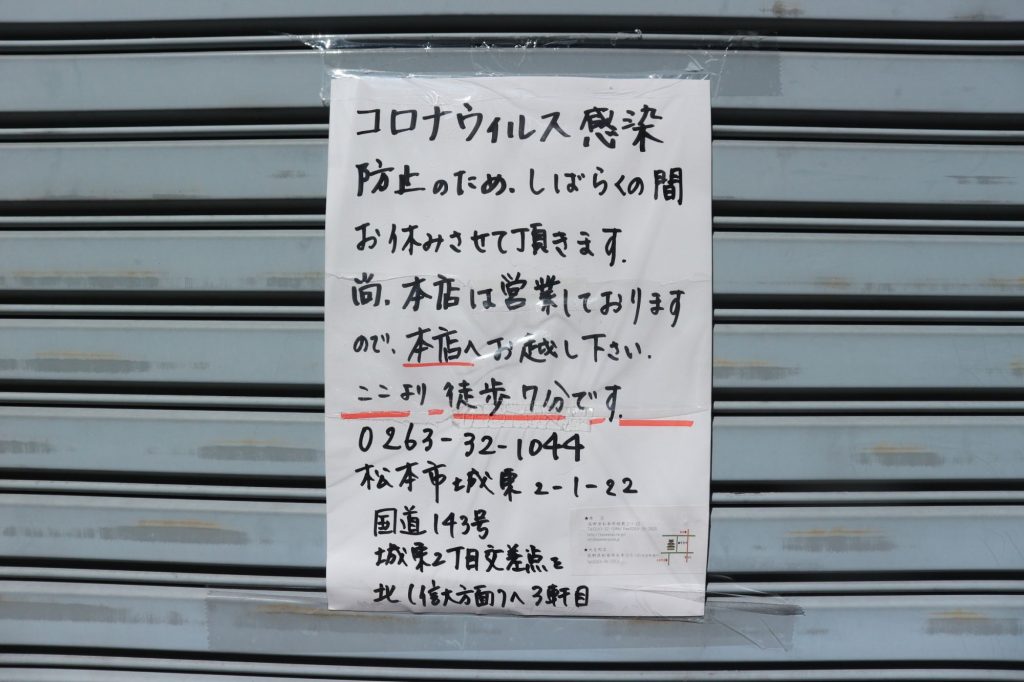 コロナウィルス感染
防止のため、しばらくの間
お休みさせて頂きます。
尚、本店は営業しております
ので、本店へお越し下さい。
ここより 徒歩7分です。
0263-32-1044
松本市城東2-1-22
国道143号
城東2丁目交差点を
北(信大方面)へ3軒目